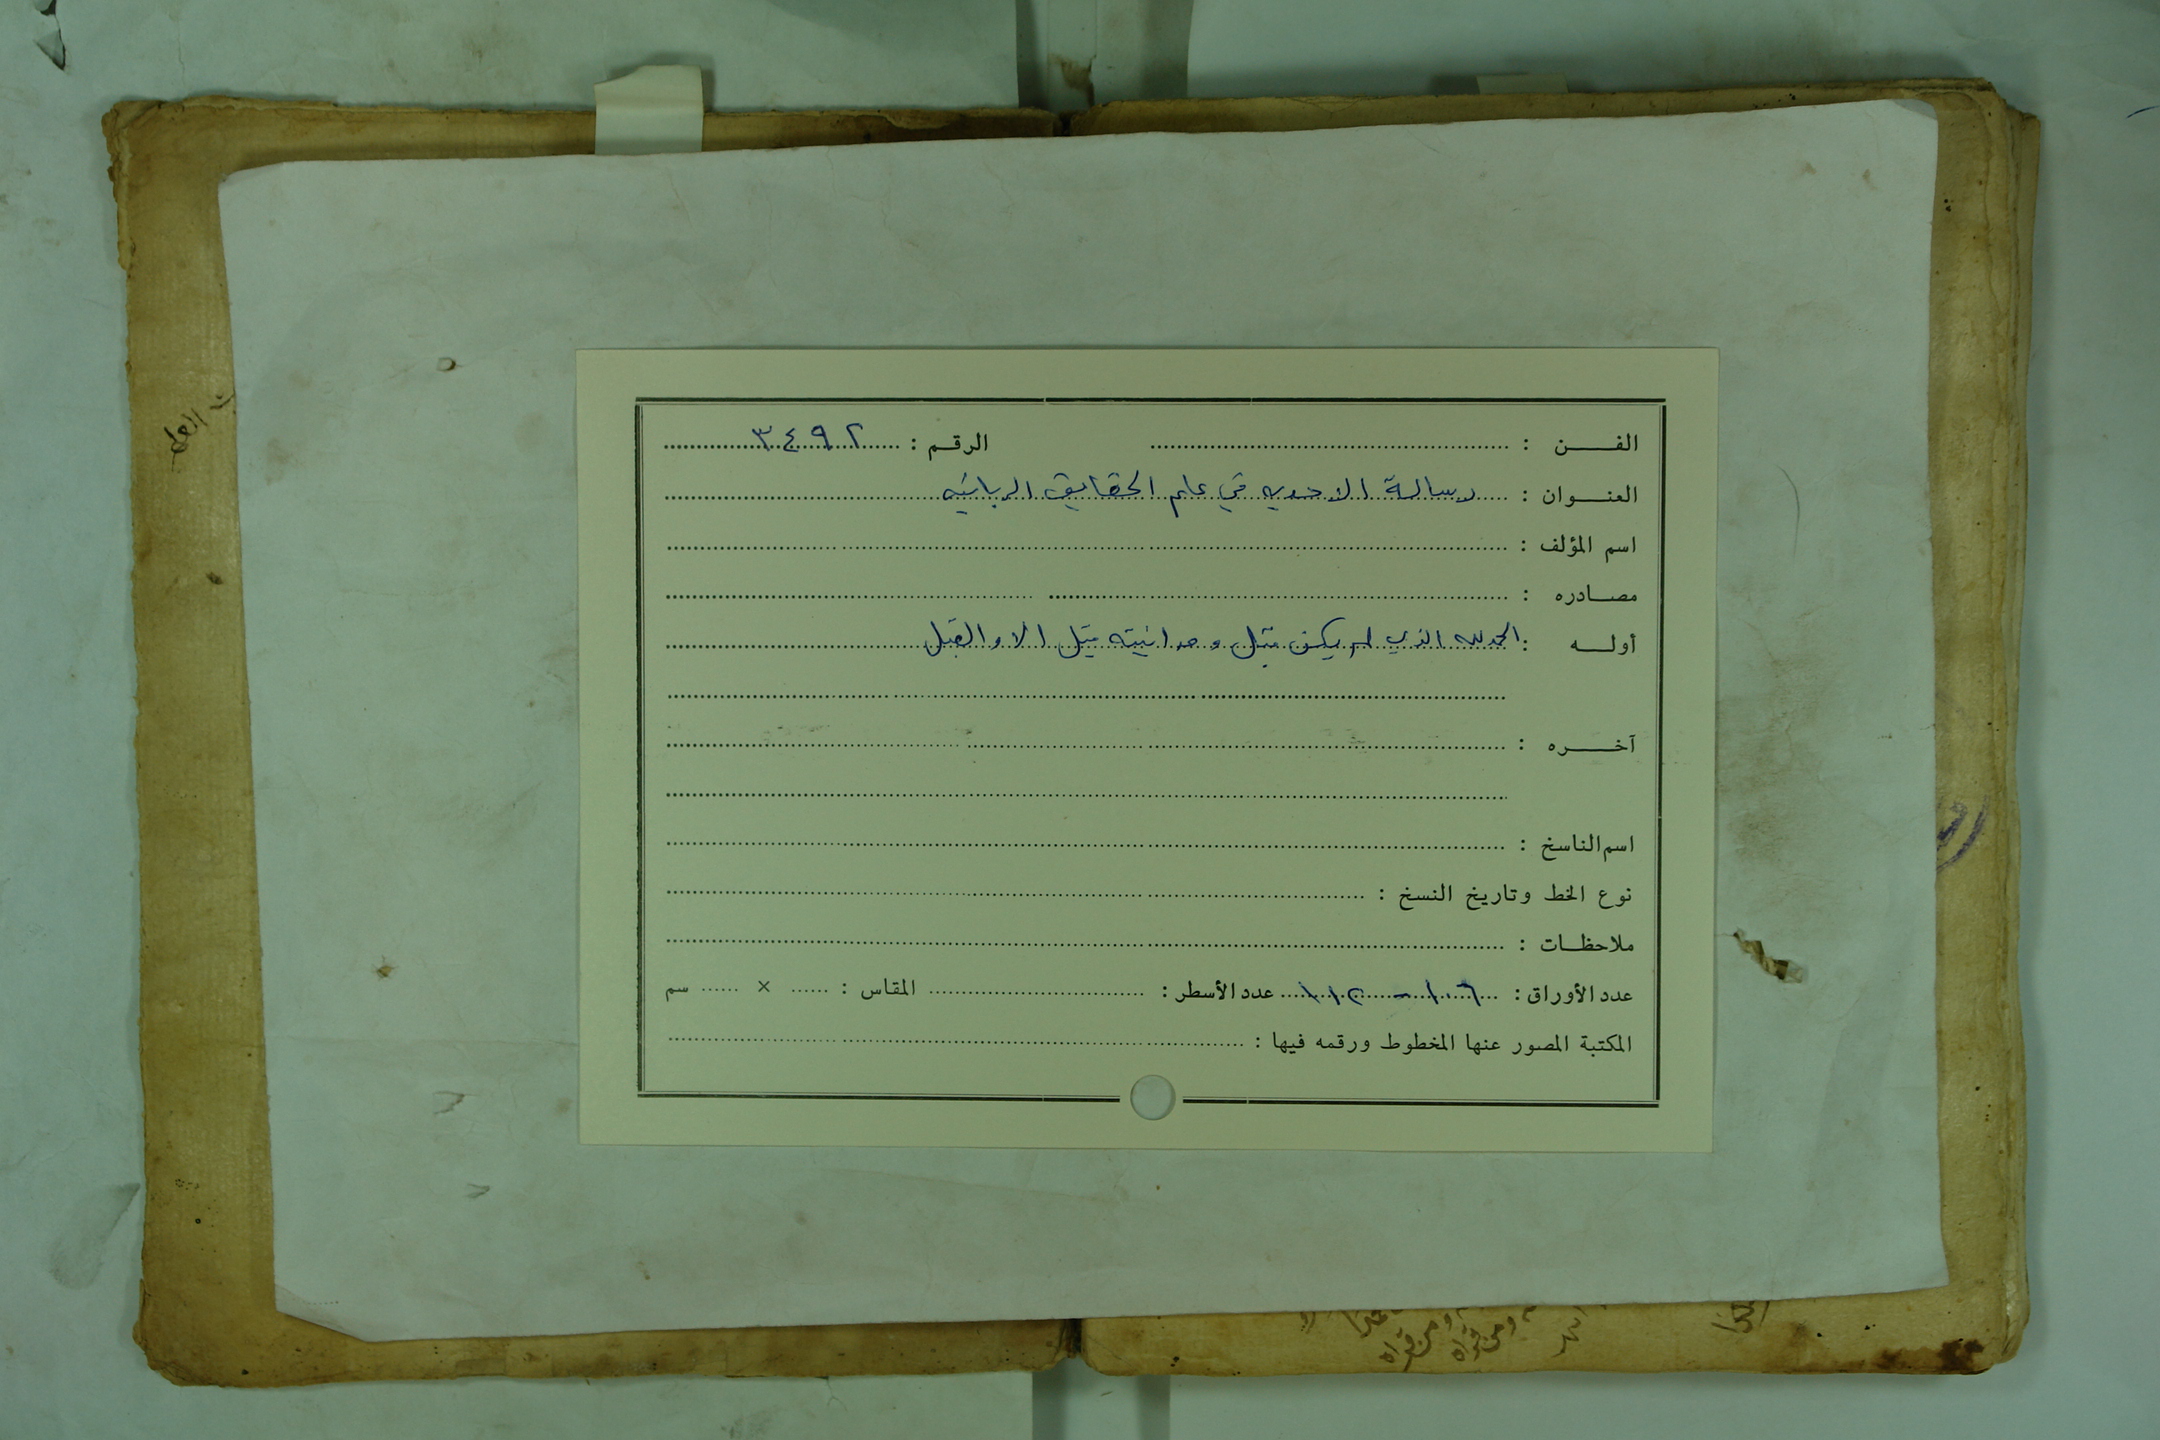 الفن : الرقم : ٣٤٩٢
العنوان : رسالة الاحديه في علم الحقايق الربانيه
اسم المؤلف :
مصادره :
أوله : الحمد لله الذي لم يكن قبل وحدانيته قبل الا والقبل
آخره :
اسم الناسخ :
نوع الخط وتاريخ النسخ :
ملاحظات :
عدد الأوراق : ١٠٦ - ١١٢ عدد الأسطر : المقاس : × سم
المكتبة المصور عنها المخطوط ورقمه فيها :
ومن قراه
ومن قراه